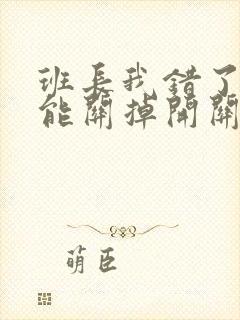 班长我错了
能關掉開關
萌臣